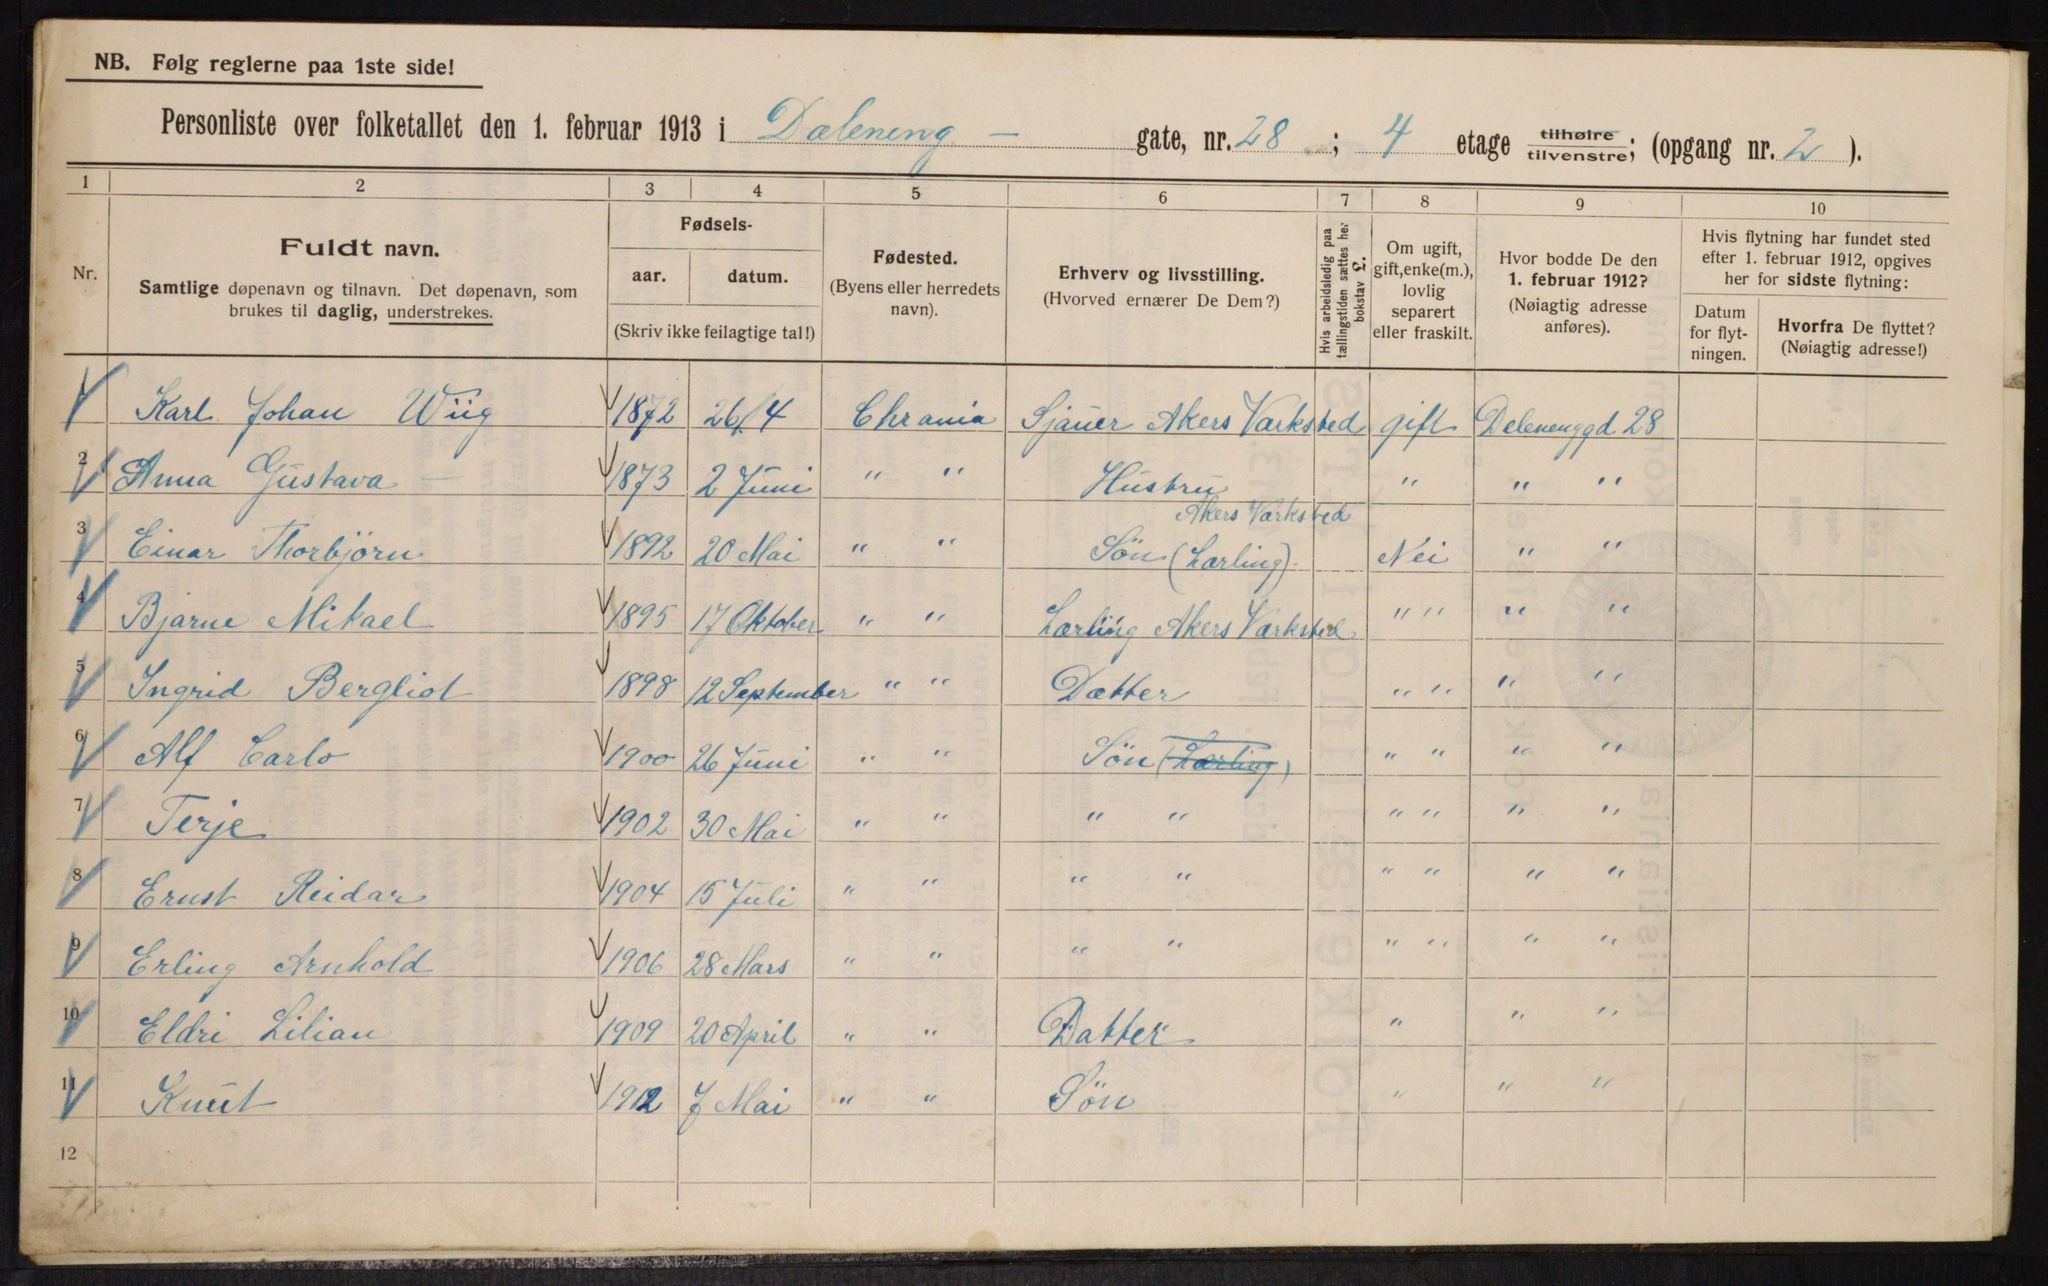 NB. Følg reglerne paa 1ste side!
Personliste over folketallet den 1. februar 1913 i Dæleneng — gate, nr. 28 ; 4 etage tilhøire / tilvenstre; (opgang nr. 2 ).
1 2 3 4 5 6 7 8 9 10
Nr.
Fuldt navn.
Samtlige døpenavn og tilnavn. Det døpenavn, som
brukes til daglig, understrekes.
Fødsels-
aar. datum.
(Skriv ikke feilagtige tal!)
Fødested.
(Byens eller herredets
navn).
Erhverv og livsstilling.
(Hvorved ernærer De Dem?)
Hvis arbeidsledig paa
tællingstiden sættes her
bokstav L.
Om ugift,
gift, enke(m.),
lovlig
separert
eller fraskilt.
Hvor bodde De den
1. februar 1912?
(Nøiagtig adresse
anføres).
Hvis flytning har fundet sted
efter 1. februar 1912, opgives
her for sidste flytning:
Datum
for flyt-
ningen.
Hvorfra De flyttet?
(Nøiagtig adresse!)
1 Karl Johan Wiig 1872 26/4 Chrania Sjauer Akers Værksted gift Delenenggd 28
2 Anna Gustava 1873 2 Juni " " Hustru " " "
Akers Værksted
3 Einar Thorbjörn 1892 20 Mai " " Sön (Lærling) Nei " "
4 Bjarne Mikael 1895 17 Oktober " " Lærling Akers Værksted " " " "
5 Ingrid Bergliot 1898 12 September " " Dætter " " " "
6 Alf Carlo 1900 26 Juni " " Sön (Lærling) " " " "
7 Terje 1902 30 Mai " " " " " " " "
8 Ernst Reidar 1904 15 Juli " " " " " " " "
9 Erling Arnhold 1906 28 Mars " " " " " " " "
10 Eldri Lilian 1909 20 April " " Datter " " "
11 Knut 1912 7 Mai " " Sön " " "
12